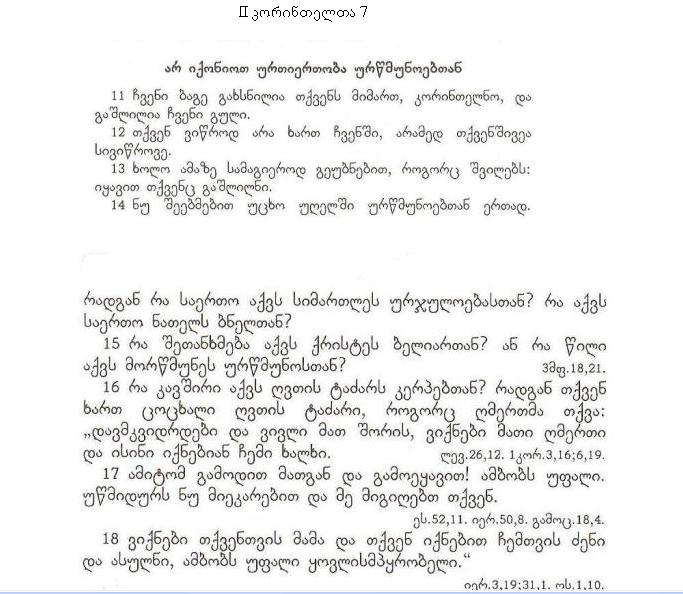 II კორინთელთა 7
არ იქონიოთ ურთიერთობა ურწმუნოებთან
11 ჩვენი ბაგე გახსნილია თქვენს მიმართ, კორინთელნო, და
გაშლილია ჩვენი გული.
12 თქვენ ვიწროდ არა ხართ ჩვენში, არამედ თქვენშივეა
სივიწროვე.
13 ხოლო ამაზე სამაგიეროდ გეუბნებით, როგორც შვილებს:
იყავით თქვენც გაშლილნი.
14 ნუ შეებმებით უცხო უღელში ურწმუნოებთან ერთად.
რადგან რა საერთო აქვს სიმართლეს ურჯულოებასთან? რა აქვს
საერთო ნათელს ბნელთან?
15 რა შეთანხმება აქვს ქრისტეს ბელიართან? ან რა წილი
აქვს მორწმუნეს ურწმუნოსთან? 3მფ.18,21.
16 რა კავშირი აქვს ღვთის ტაძარს კერპებთან? რადგან თქვენ
ხართ ცოცხალი ღვთის ტაძარი, როგორც ღმერთმა თქვა:
„დავმკვიდრდები და ვივლი მათ შორის, ვიქნები მათი ღმერთი
და ისინი იქნებიან ჩემი ხალხი. ლევ.26,12. 1კორ.3,16;6,19.
17 ამიტომ გამოდით მათგან და გამოეყავით! ამბობს უფალი.
უწმიდურს ნუ მიეკარებით და მე მიგიღებთ თქვენ.
ეს.52,11. იერ.50,8. გამოც.18,4.
18 ვიქნები თქვენთვის მამა და თქვენ იქნებით ჩემთვის ძენი
და ასულნი, ამბობს უფალი ყოვლისმპყრობელი.“
იერ.3,19;31,1. ოს.1,10.